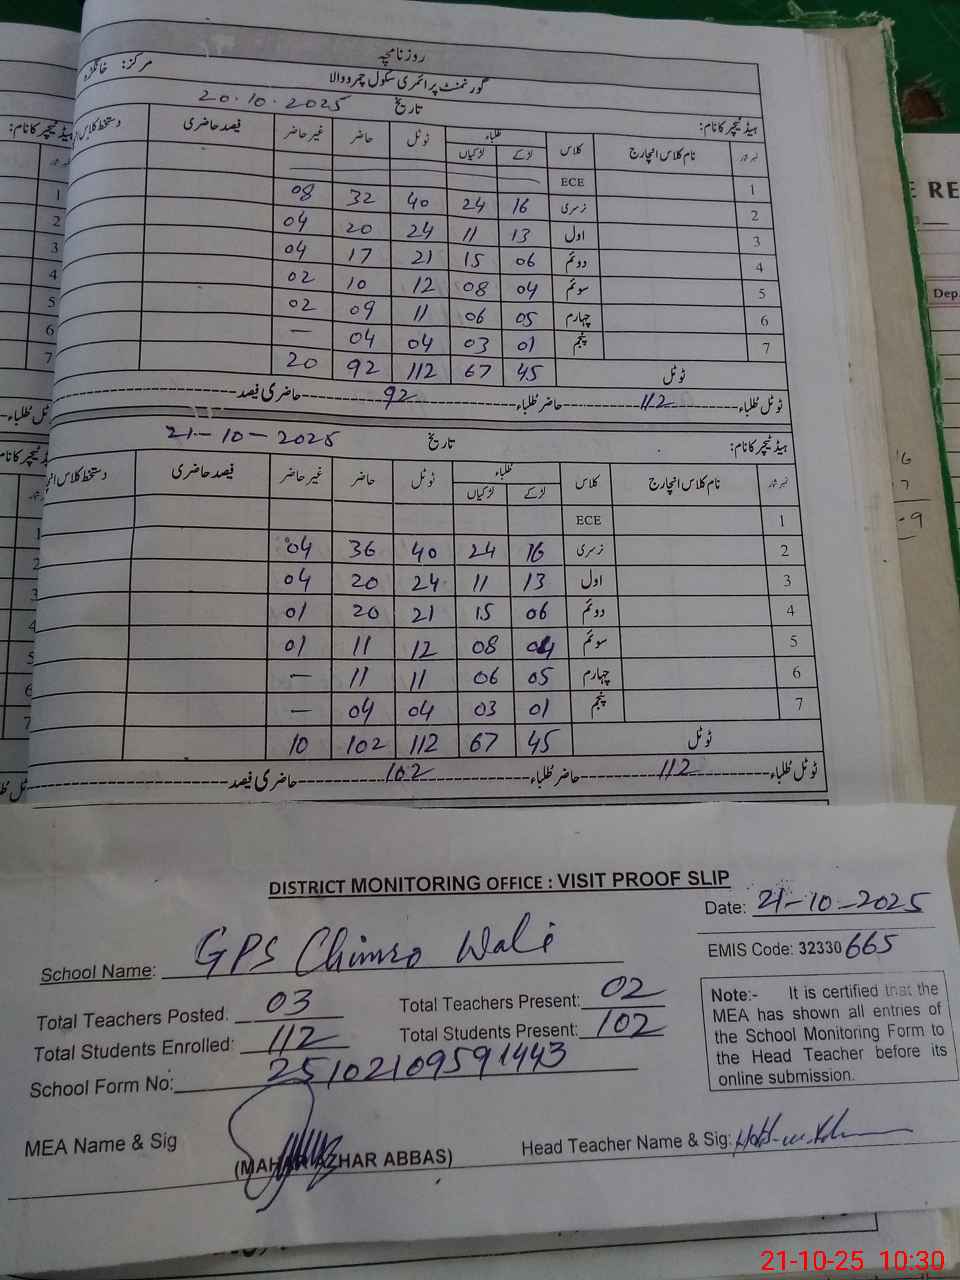 روزنامچہ
گورنمنٹ پرائمری سکول چمرووالا
مرکز:
تاریخ 20.10.2025
ہیڈ ٹیچر کا نام:
نمبر شمار نام کلاس انچارج کلاس طلباء لڑکے لڑکیاں ٹوٹل حاضر غیر حاضر فیصد حاضری
1 ECE —
2 نرسری 16 24 40 32 08
3 اول 13 11 24 20 04
4 دوئم 06 15 21 17 04
5 سوئم 04 08 12 10 02
6 چہارم 05 06 11 09 02
7 پنجم 01 03 04 04 —
ٹوٹل 45 67 112 92 20
ٹوٹل طلباء 112 حاضر طلباء 92 حاضری فیصد
ہیڈ ٹیچر کا نام:
تاریخ 21-10-2025
نمبر شمار نام کلاس انچارج کلاس طلباء لڑکے لڑکیاں ٹوٹل حاضر غیر حاضر فیصد حاضری
1 ECE
2 نرسری 16 24 40 36 04
3 اول 13 11 24 20 04
4 دوئم 06 15 21 20 01
5 سوئم 04 08 12 11 01
6 چہارم 05 06 11 11 —
7 پنجم 01 03 04 04 —
ٹوٹل 45 67 112 102 10
ٹوٹل طلباء 112 حاضر طلباء 102 حاضری فیصد
DISTRICT MONITORING OFFICE : VISIT PROOF SLIP
Date: 21-10-2025
School Name: GPS Chimro Wali
EMIS Code: 32330665
Total Teachers Posted. 03 Total Teachers Present: 02
Total Students Enrolled: 112 Total Students Present: 102
School Form No: 25102109591443
Note:- It is certified that the
MEA has shown all entries of
the School Monitoring Form to
the Head Teacher before its
online submission.
MEA Name & Sig
(MAHAR AZHAR ABBAS)
Head Teacher Name & Sig:
21-10-25 10:30